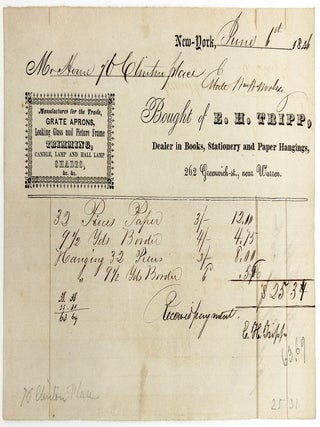 New-York, June 6th 1846
Mr House 70 Clinton place
Manufacturer for the Trade,
GRATE APRONS,
Looking Glass and Picture Frame
TRIMMING,
CANDLE, LAMP AND HALL LAMP
SHADES,
&c. &c.
Bought of E. H. TRIPP,
Dealer in Books, Stationery and Paper Hangings,
262 Greenwich-st., near Warren.
32 Pieces Paper 3/- 12.00
9 1/2 Yds Border 4/- 4.75
Hanging 32 Pieces 2/- 8.00
9 1/2 Yds Border 6 .59
$ 25.34
Received payment
E. H. Tripp
63.69
70 Clinton Place
25 31